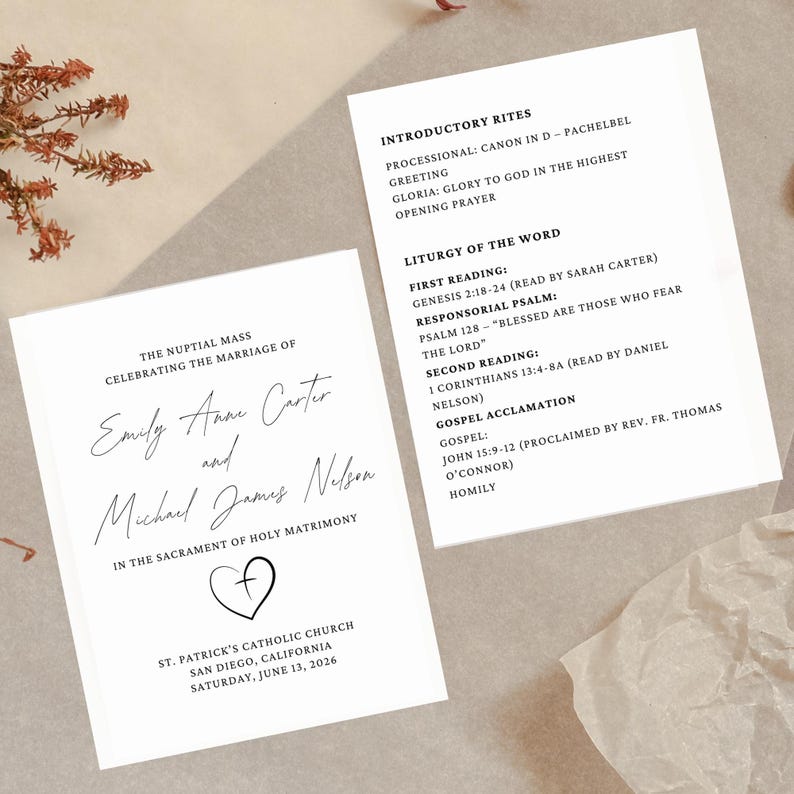 THE NUPTIAL MASS
CELEBRATING THE MARRIAGE OF
Emily Anne Carter
and
Michael James Nelson
IN THE SACRAMENT OF HOLY MATRIMONY
ST. PATRICK'S CATHOLIC CHURCH
SAN DIEGO, CALIFORNIA
SATURDAY, JUNE 13, 2026
INTRODUCTORY RITES
PROCESSIONAL: CANON IN D – PACHELBEL
GREETING
GLORIA: GLORY TO GOD IN THE HIGHEST
OPENING PRAYER
LITURGY OF THE WORD
FIRST READING:
GENESIS 2:18-24 (READ BY SARAH CARTER)
RESPONSORIAL PSALM:
PSALM 128 – “BLESSED ARE THOSE WHO FEAR
THE LORD”
SECOND READING:
1 CORINTHIANS 13:4-8A (READ BY DANIEL
NELSON)
GOSPEL ACCLAMATION
GOSPEL:
JOHN 15:9-12 (PROCLAIMED BY REV. FR. THOMAS
O’CONNOR)
HOMILY